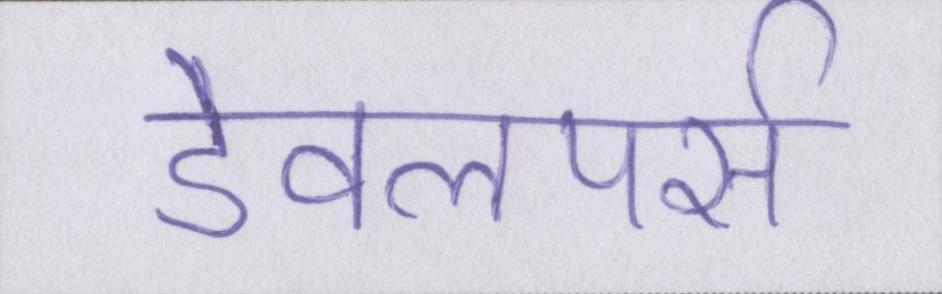 डेवलपर्स